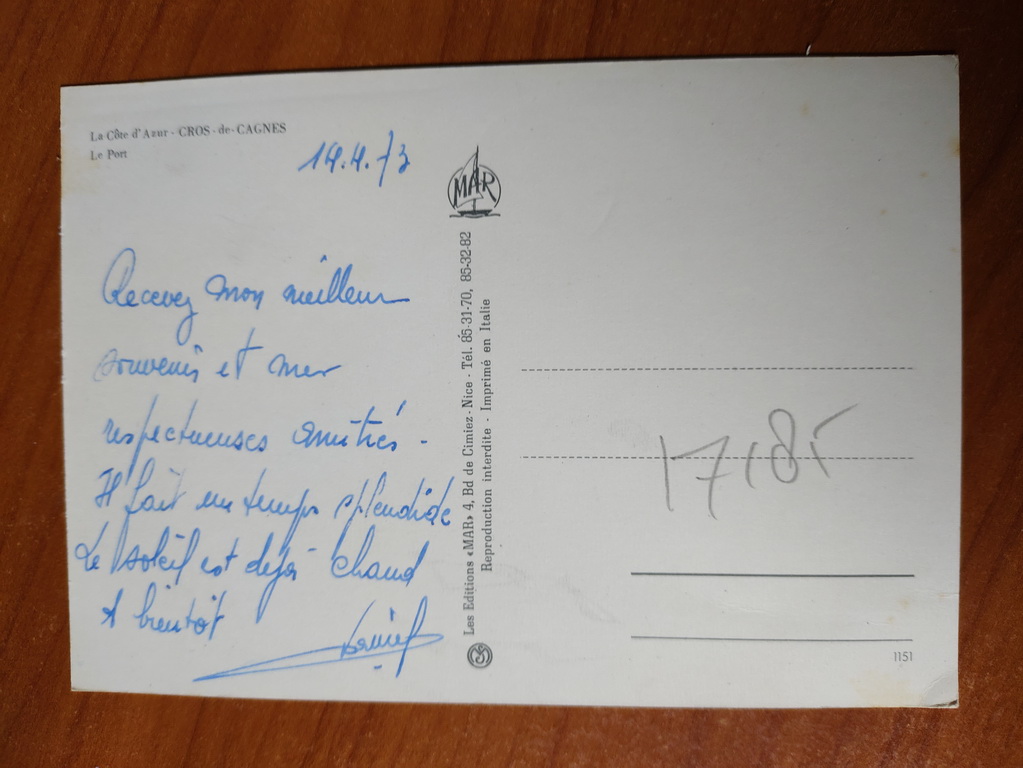 La Côte d'Azur - CROS-de-CAGNES
Le Port
14.4.73
MAR
Recevez mon meilleur
souvenir et mes
respectueuses amitiés -
Il fait un temps splendide
Le soleil est déjà chaud
A bientôt
Daniel
Les Editions «MAR» 4, Bd de Cimiez - Nice - Tél. 85-31-70, 85-32-82
Reproduction interdite - Imprimé en Italie
1151